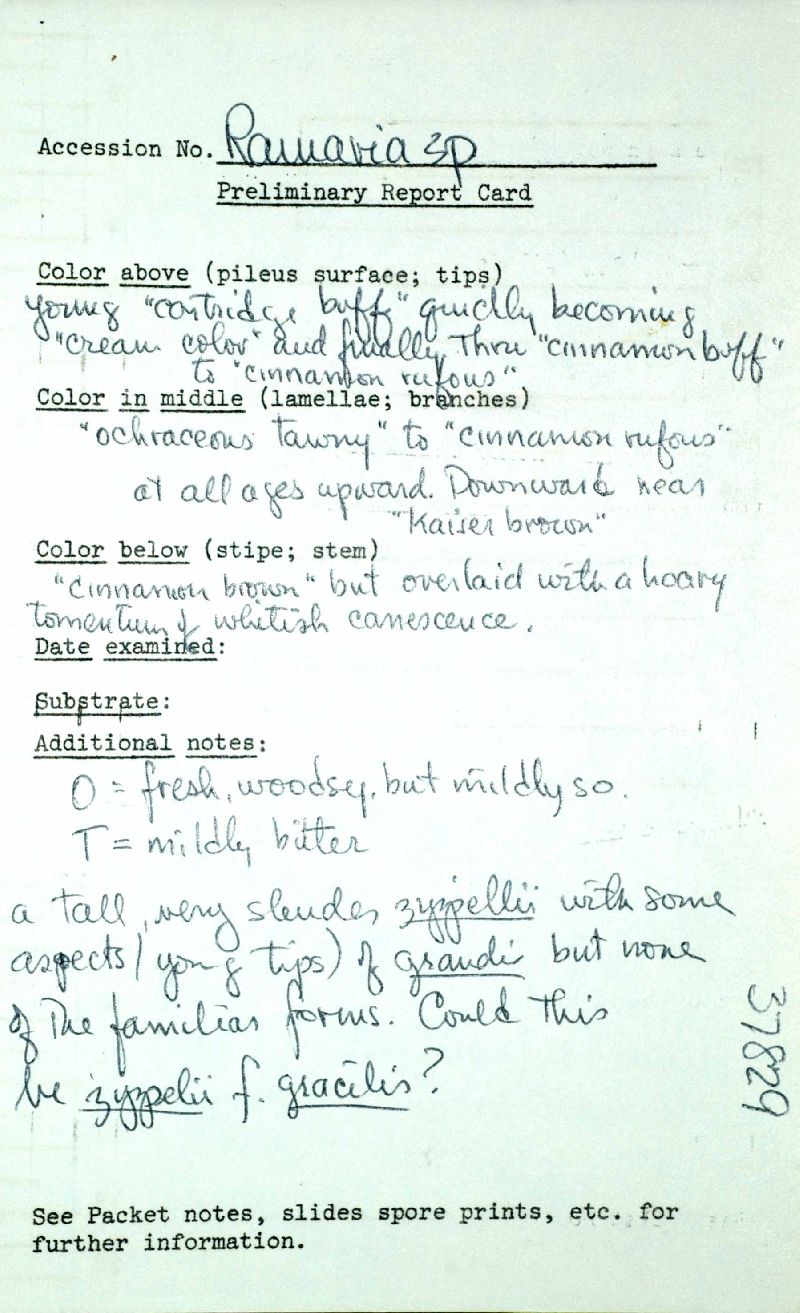 Accession No. Ramaria sp
Preliminary Report Card
Color above (pileus surface; tips)
young "cartridge buff" quickly becoming
"cream color" and finally thru "cinnamon buff"
to "cinnamon rufous"
Color in middle (lamellae; branches)
"ochraceous tawny" to "cinnamon rufous"
at all ages upward. Downward near
"Kaiser brown"
Color below (stipe; stem)
"cinnamon brown" but overlaid with a hoary
tomentum of whitish canescence.
Date examined:
Substrate:
Additional notes:
O = fresh, woodsey, but mildly so.
T = mildly bitter
a tall, very slender zyppellii with some
aspects (young tips) of grandis but none
of the familiar forms. Could this
be zyppelii f. gracilis?
37829
See Packet notes, slides spore prints, etc. for
further information.